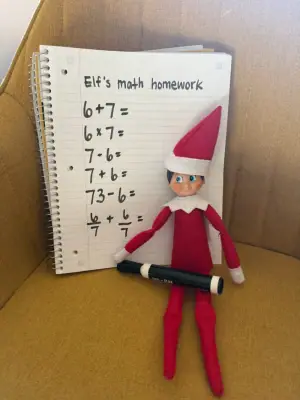 Elf's math homework
6+7=
6x7=
7-6=
7+6=
73-6=
6/7 + 6/7 =